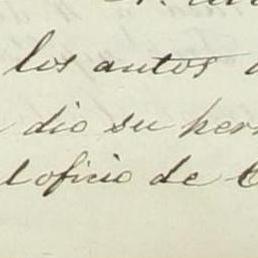 los autos
dio su her
l oficio de